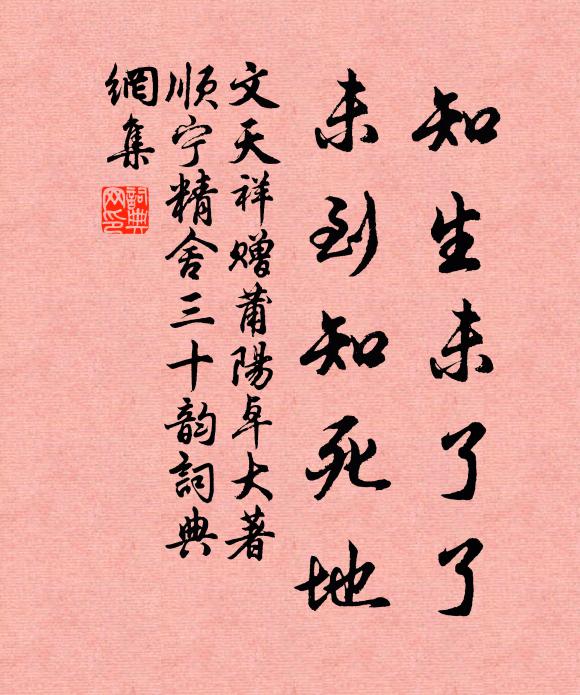 知生未了了
未到知死地
文天祥赠莆陽卓大著
順宁精舍三十韵詞典
網集
詞典网印